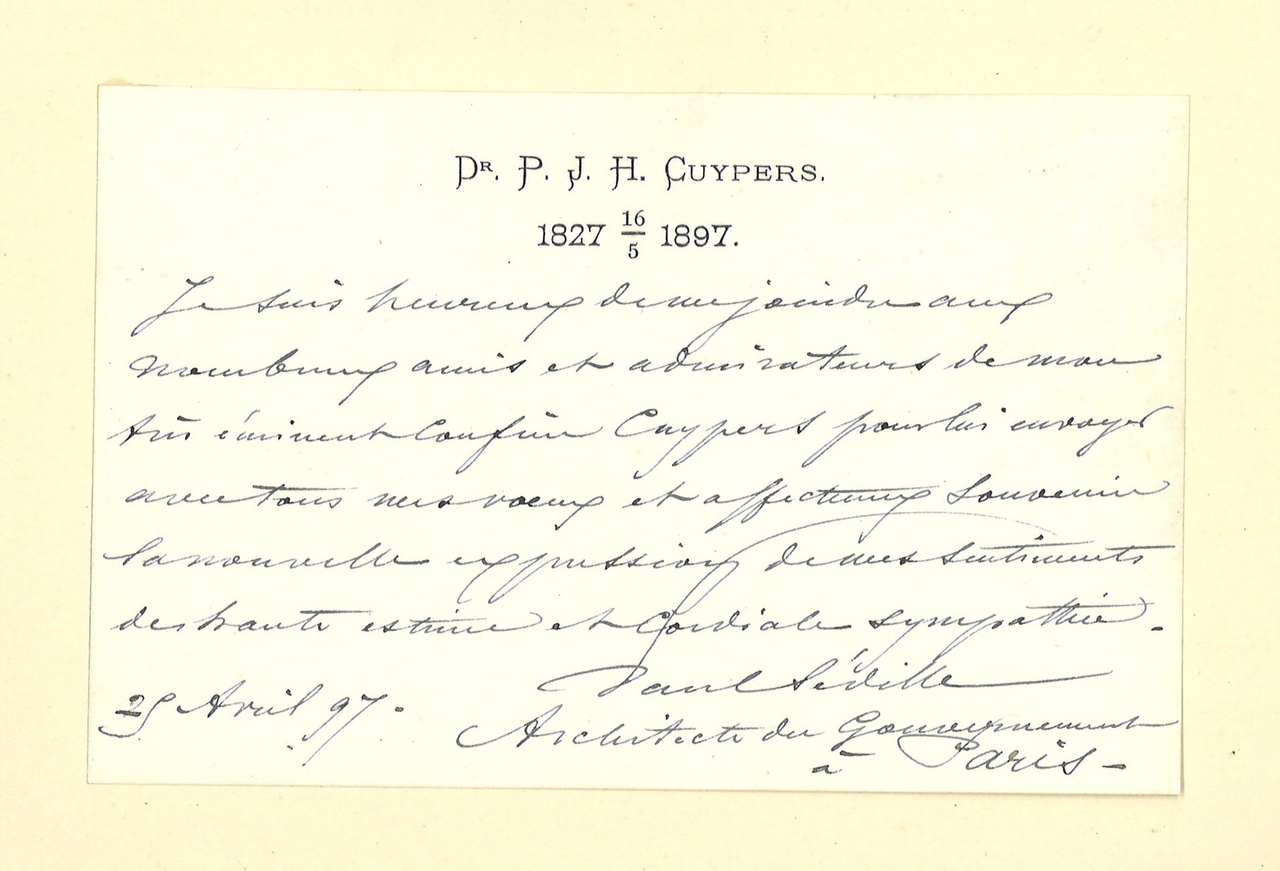 Dr. P. J. H. Cuypers.
1827 16/5 1897.
Je suis heureux de me joindre aux
nombreux amis et admirateurs de mon
très éminent Confrère Cuypers pour lui envoyer
avec tous mes vœux et affectueux souvenir
la nouvelle expression de mes sentiments
de haute estime et Cordiale sympathie.
Paul Sédille
25 Avril 97.
Architecte du Gouvernement
à Paris -